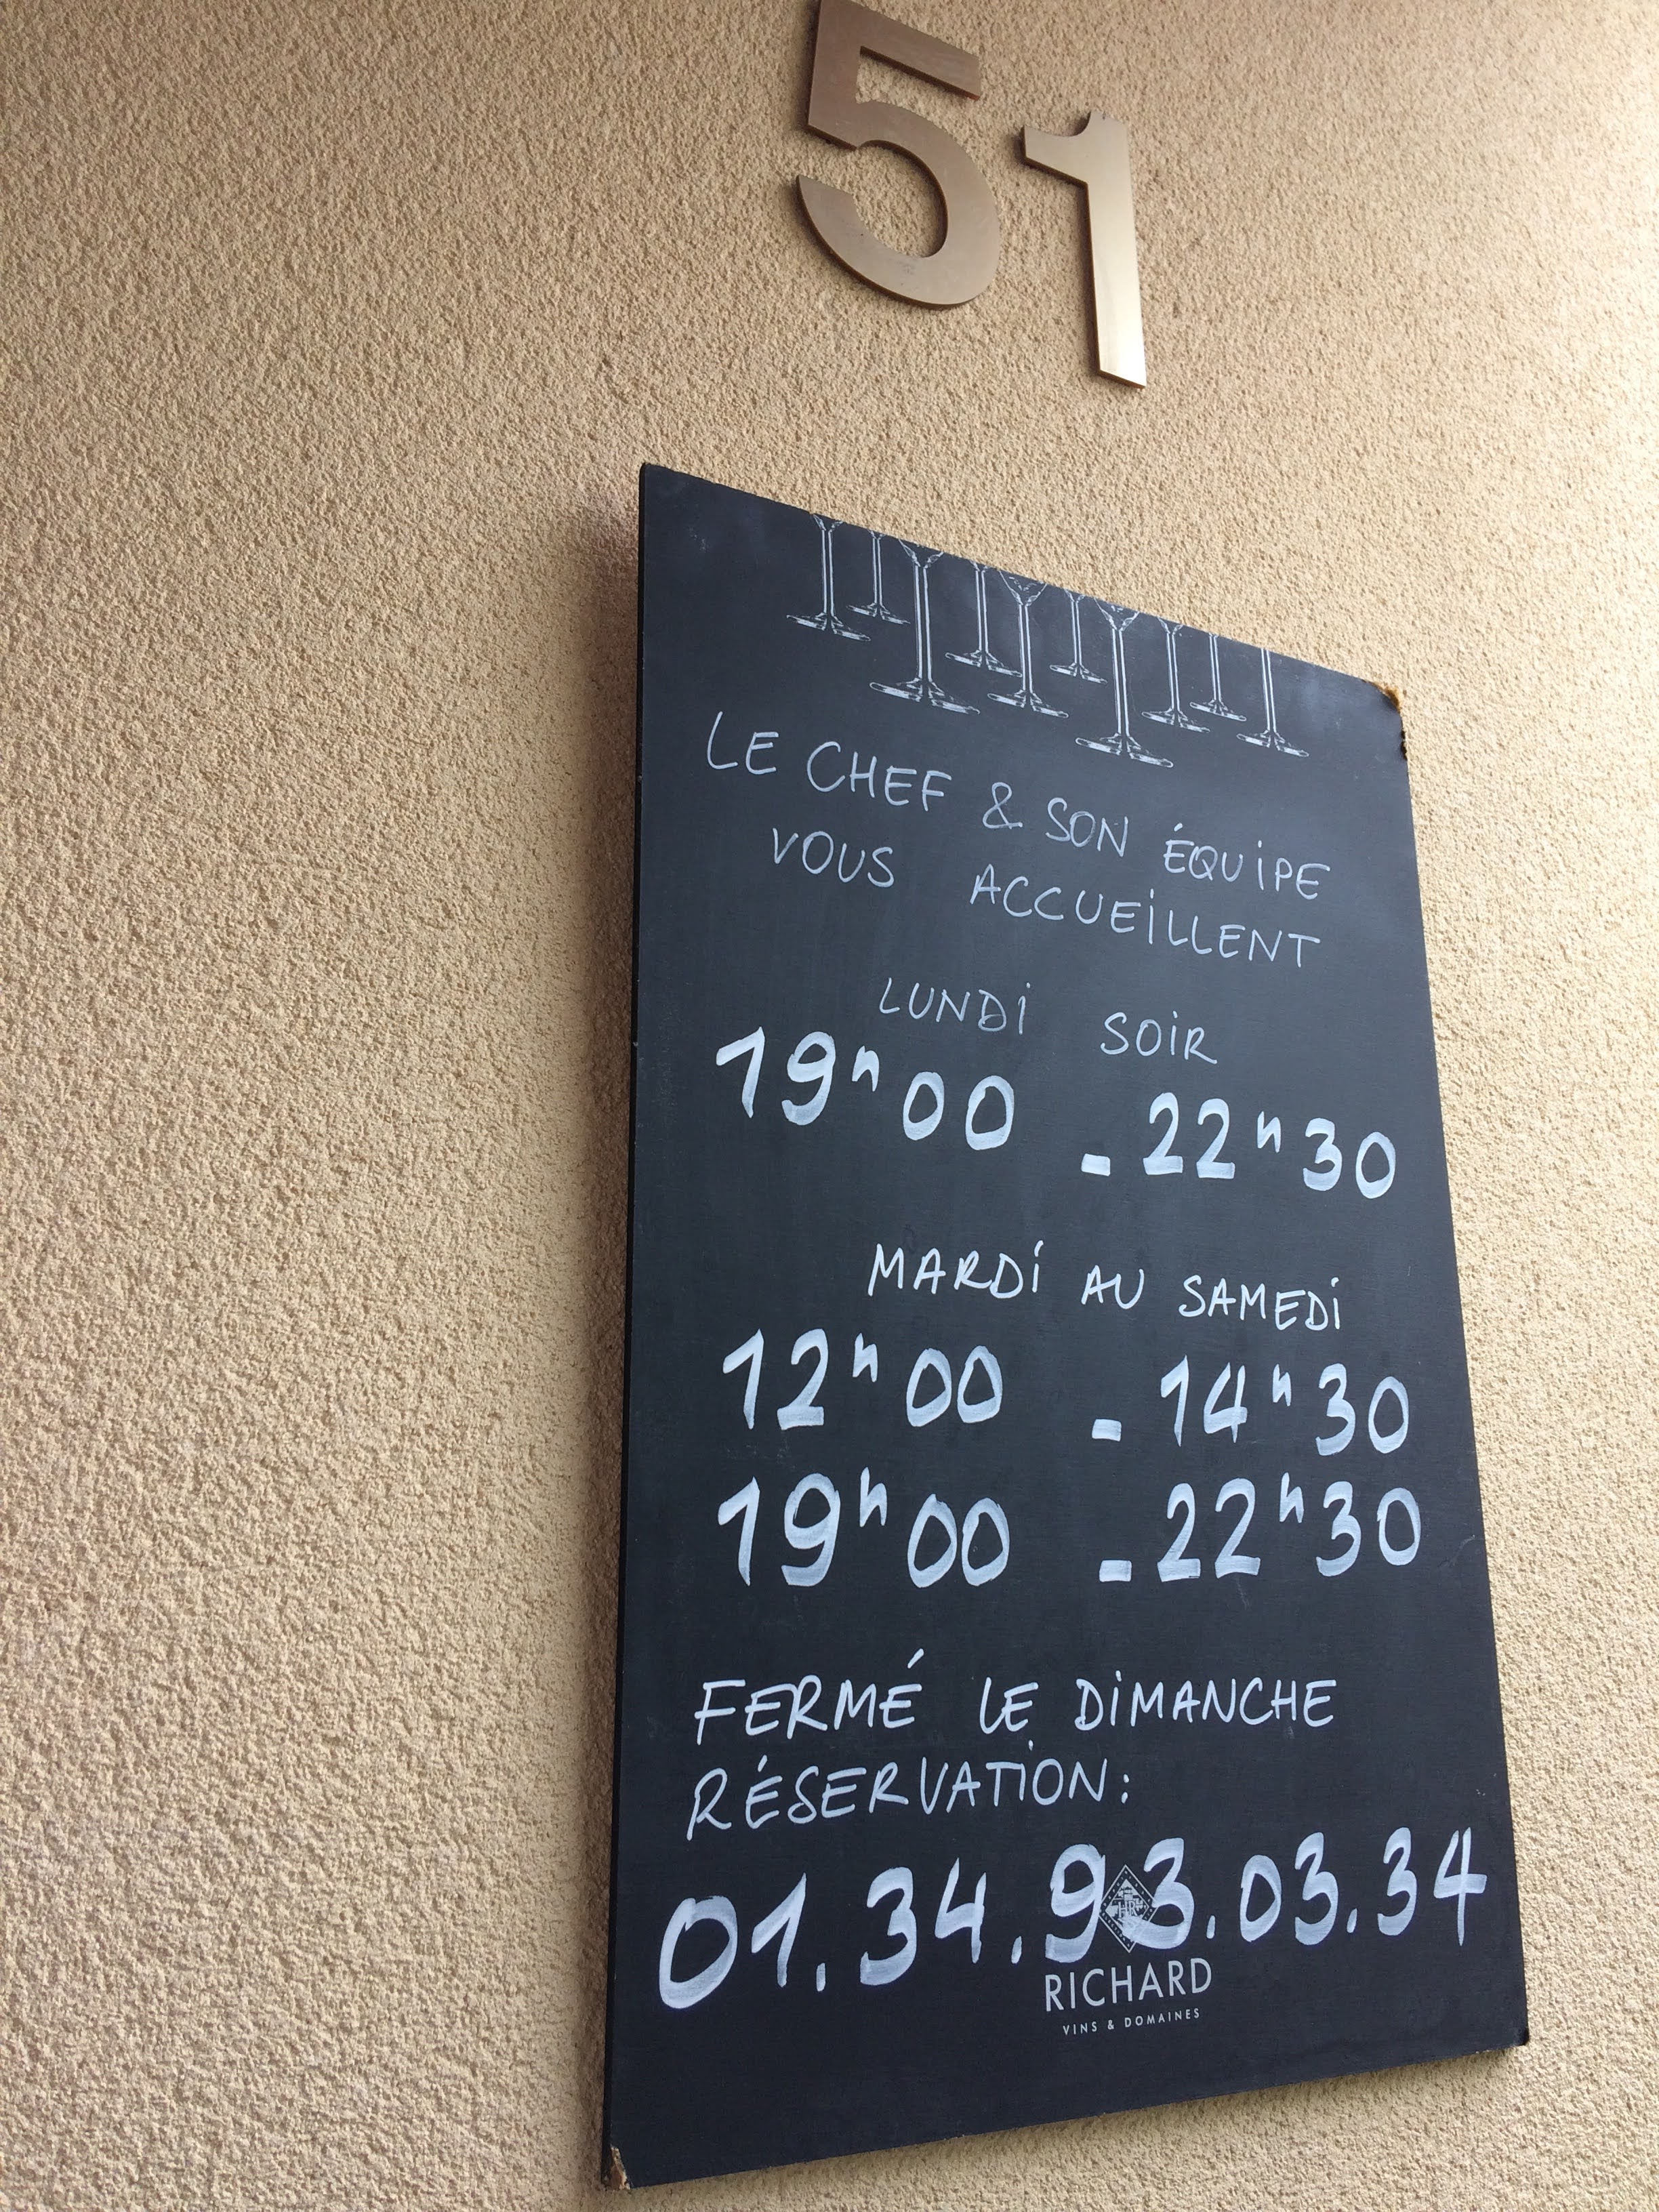 51
LE CHEF & SON ÉQUIPE
VOUS ACCUEILLENT
LUNDI SOIR
19h00 - 22h30
MARDI AU SAMEDI
12h00 - 14h30
19h00 - 22h30
FERMÉ LE DIMANCHE
RÉSERVATION:
01.34.93.03.34
RICHARD
VINS & DOMAINES